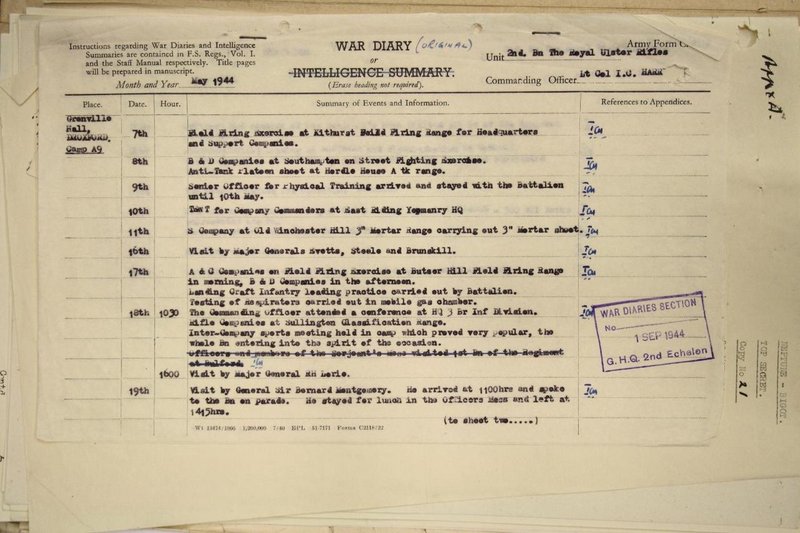 Instructions regarding War Diaries and Intelligence
Summaries are contained in F.S. Regs., Vol. I.
and the Staff Manual respectively. Title pages
will be prepared in manuscript.
Month and Year May 1944
WAR DIARY (ORIGINAL)
or
INTELLIGENCE SUMMARY.
(Erase heading not required).
Army Form C.
Unit 2nd. Bn The Royal Ulster Rifles
Commanding Officer Lt Col I.C. HARR
APPX A.
Place. Date. Hour. Summary of Events and Information. References to Appendices.
Grenville
Hall,
DROXFORD.
Camp A9
7th Field Firing Exercise at Kithurst Field Firing Range for Headquarters
and Support Companies.
8th B & D Companies at Southampton on Street Fighting Exercise.
Anti-Tank Platoon shoot at Hordle House A tk range.
9th Senior Officer for Physical Training arrived and stayed with the Battalion
until 10th May.
10th TEWT for Company Commanders at East Riding Yeomanry HQ
11th S Company at Old Winchester Hill 3" Mortar Range carrying out 3" Mortar shoot.
16th Visit by Major Generals Evetts, Steele and Brunskill.
17th A & C Companies on Field Firing Exercise at Butser Hill Field Firing Range
in morning, B & D Companies in the afternoon.
Landing Craft Infantry loading practice carried out by Battalion.
Testing of Respirators carried out in mobile gas chamber.
18th 1030 The Commanding Officer attended a conference at HQ 3 Br Inf Division.
Rifle Companies at Sullington Classification Range.
Inter-Company sports meeting held in camp which proved very popular, the
whole Bn entering into the spirit of the occasion.
Officers and members of the Serjeant's mess visited 1st Bn of the Regiment
at Bulford.
1600 Visit by Major General RH Lorie.
19th Visit by General Sir Bernard Montgomery. He arrived at 1100hrs and spoke
to the Bn on parade. He stayed for lunch in the Officers Mess and left at
1415hrs.
(to sheet two.....)
WAR DIARIES SECTION
No.
1 SEP 1944
G.H.Q. 2nd Echelon
NEPTUNE - BIGOT.
TOP SECRET.
Copy No 21